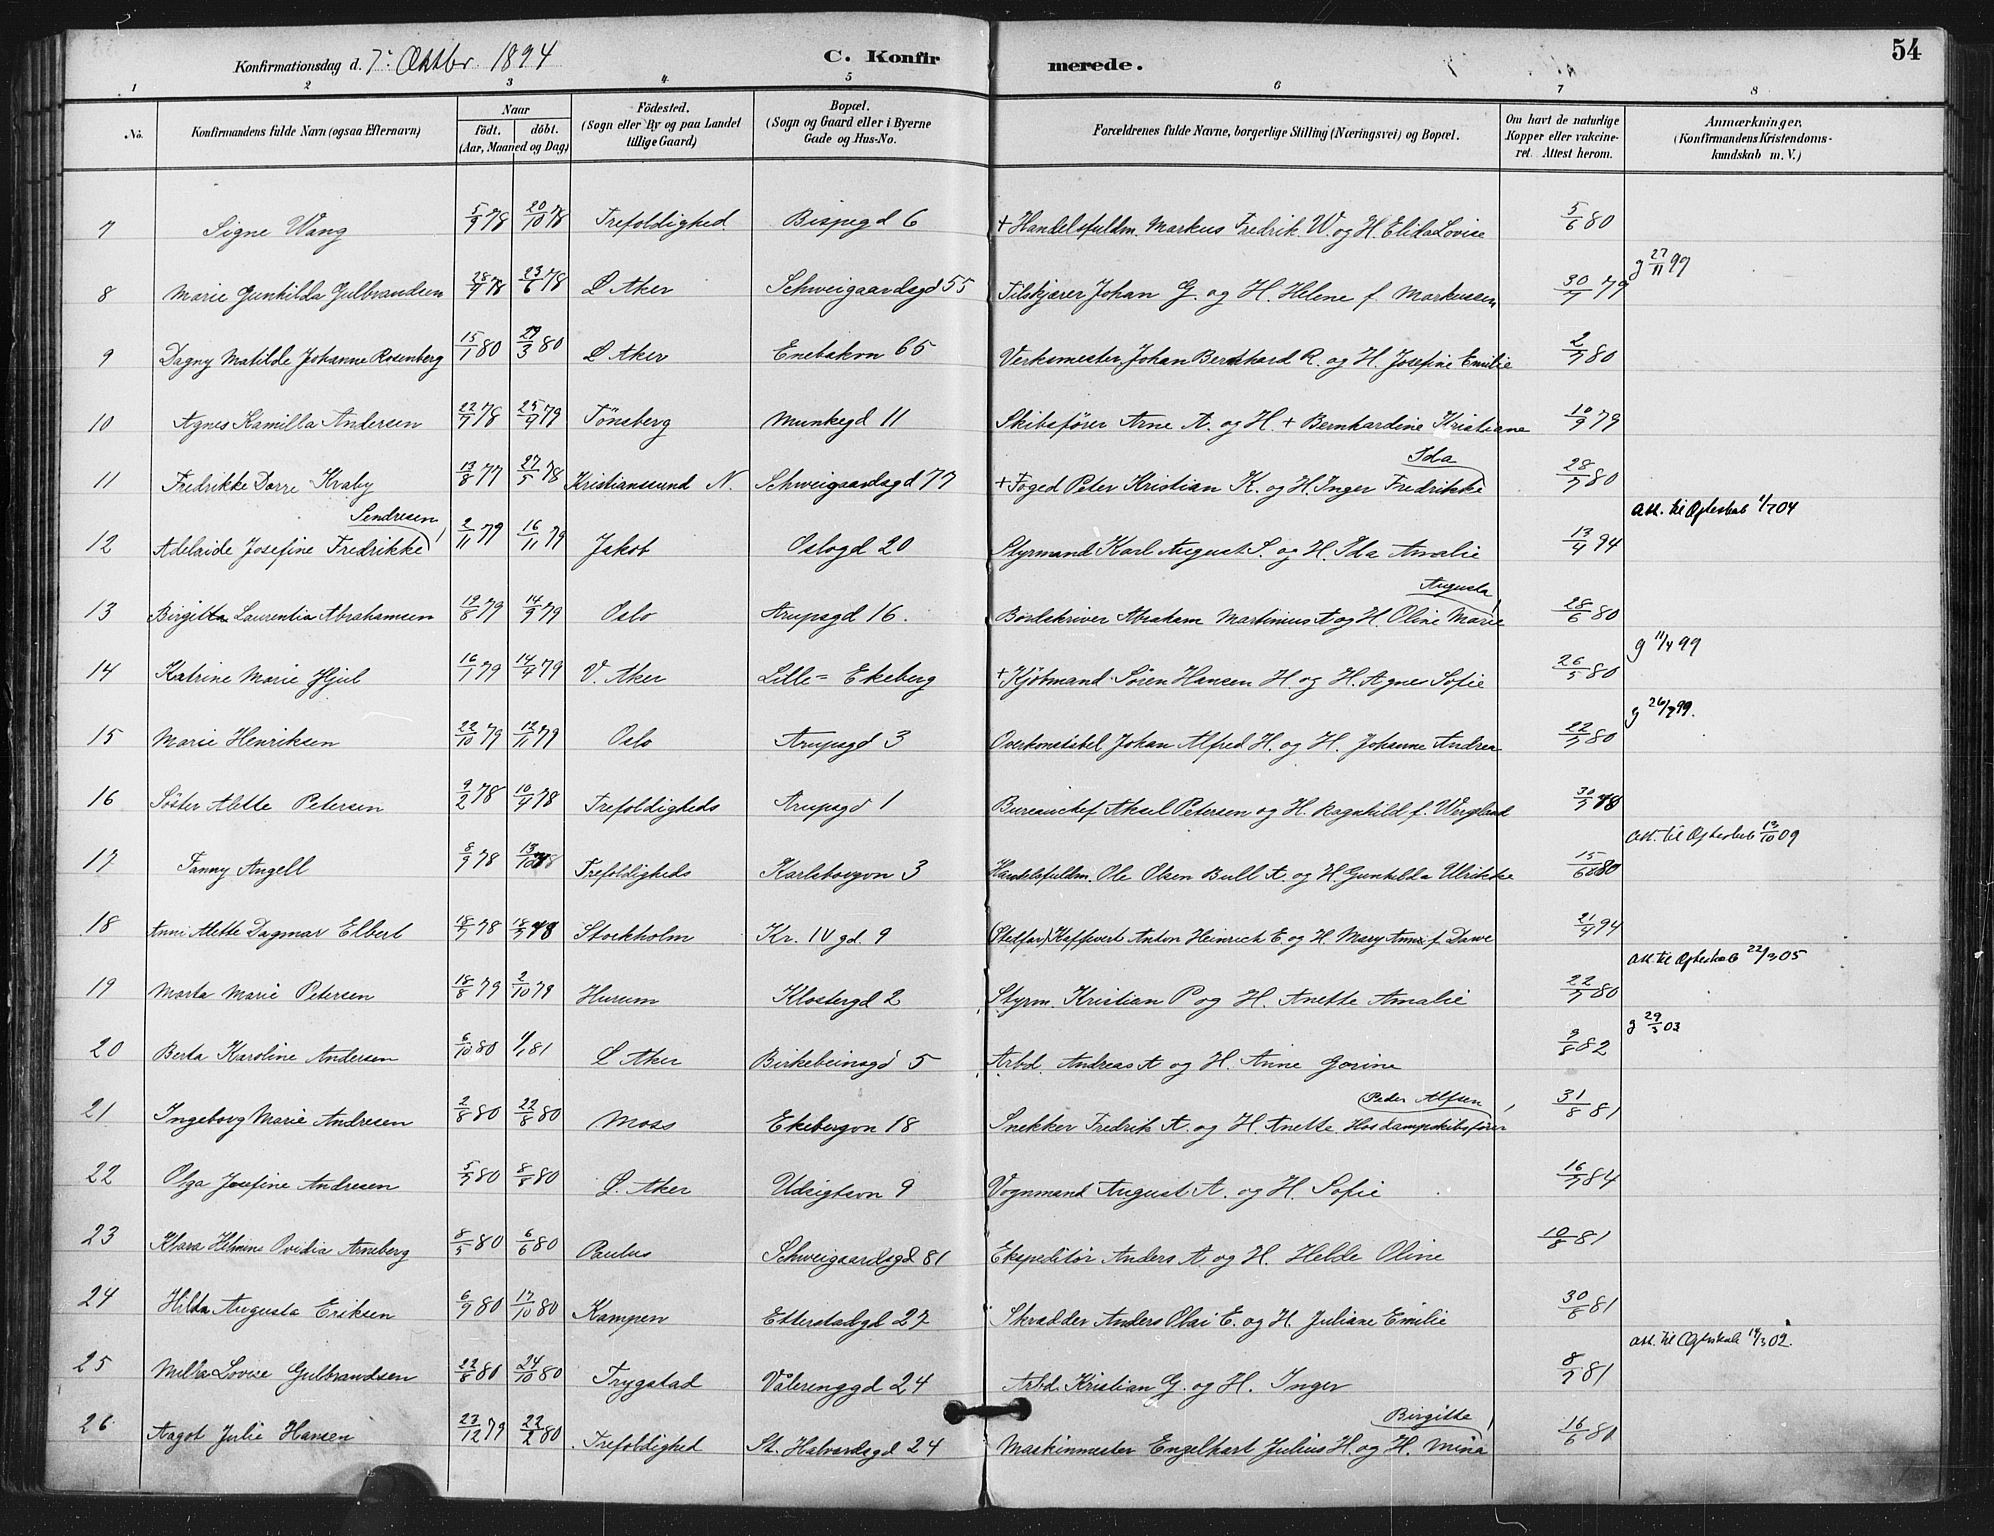 Konfirmationsdag d. 7. Oktbr. 1894 C. Konfirmerede. 54
1 2 3 4 5 6 7 8
No. Konfirmandens fulde Navn (ogsaa Efternavn) Naar födt. döbt. (Aar, Maaned og Dag) Födested. (Sogn eller By og paa Landet tillige Gaard) Bopæl. (Sogn og Gaard eller i Byerne Gade og Hus-No. Forældrenes fulde Navne, borgerlige Stilling (Næringsvei) og Bopæl. Om havt de naturlige Kopper eller vakcineret. Attest herom. Anmærkninger, (Konfirmandens Kristendomskundskab m. V.)
7 Signe Wang 5/9 78 20/10 78 Trefoldighed Bispegd 6 + Handelsfuldm. Markus Fredrik W. og H. Elida Lovise 5/6 80
g 27/11 97
8 Marie Gunhilda Gulbrandsen 28/4 78 23/6 78 Ö Aker Schweigaardsgd 55 Filskjærer Johan G. og H. Helene f. Markussen 30/7 79
9 Dagny Matilde Johanne Rosenberg 15/1 80 29/3 80 Ö Aker Enebakvn 65 Verksmester Johan Bernhard R. og H. Josefine Emilie 2/7 80
10 Agnes Kamilla Andersen 22/9 78 25/4 79 Tönsberg Munkegd 11 Skibsfører Arne A. og H. + Bernhardine Kristiane 10/9 79
Ida
11 Fredrikke Dorre Kraby 13/8 77 27/5 78 Kristianssund N. Schweigaardsgd 77 + Foged Peter Kristian K. og H. Inger Fredrikke 28/7 80
Sendresen Att. til Ægteskab 1/7 04
12 Adelaide Josefine Fredrikke 2/11 79 16/11 79 Jakob Oslogd 20 Styrmand Karl August S. og H. Ida Amalie 13/4 94
Augusta
13 Birgitta Laurentia Abrahamsen 19/8 79 14/9 79 Oslo Arupsgd 16. Bordskriver Abraham Martinius A og H. Oline Marie 28/6 80
g 11/4 99
14 Katrine Marie Hjul 16/1 79 14/4 79 V. Aker Lille= Ekeberg + Kjöbmand Sören Hansen H og H. Agnes Sofie 26/5 80
g 26/7 99.
15 Marie Henriksen 22/10 79 12/11 79 Oslo Arupsgd 3 Overkonstabel Johan Alfred H. og H. Johanne Andrea 22/7 80
16 Söster Alette Petersen 9/2 78 10/4 78 Trefoldigheds Arupsgd 1 Bureauchef Aksel Petersen og H. Ragnhild f. Wergland 30/7 78
Att. til Ægteskab 13/10 09
17 Fanny Angell 8/9 78 13/10 78 Trefoldigheds Karlsborgvn 3 Handelsfuldm. Ole Olsen Bull A. og H. Gunhilda Ulrikke 15/6 80
18 Anni Alette Dagmar Elbert 18/7 78 18/7 78 Stockholm Kr. IV gd. 9 (Stedfar) Kaffevert Anton Heinrich E. og H. Mary Anni f. Dawe 21/4 94
Att. til Ægteskab 22/3 05
19 Marta Marie Petersen 18/8 79 2/10 79 Hurum Klostergd 2 Styrm. Kristian P og H. Anette Amalie 22/7 80
g 29/3 03
20 Berta Karoline Andersen 6/10 80 1/1 81 Ö Aker Birkebeinsgd 5 Arbd. Andreas A og H. Anne Gorine 9/8 82
Peder Alfsen
21 Ingeborg Marie Andresen 2/8 80 22/8 80 Moss Ekebergvn 18 Snekker Fredrik A. og H. Anette. Hos dampskibsfører 31/8 81
22 Olga Josefine Andresen 5/7 80 8/8 80 Ö. Aker Udsigtsvn 9 Vognmand August A. og H. Sofie 16/7 84
23 Klara Helmine Ovidia Arneberg 8/5 80 6/6 80 Paulus Schweigaardsgd 81 Ekspeditör Anders A. og H. Helde Oline 10/8 81
24 Hilda Augusta Eriksen 6/9 80 17/10 80 Kampen Etterstadgd 27 Skrædder Anders Olai E. og H. Juliane Emilie 30/6 81
Att. til Ægteskab 14/3 02.
25 Milla Lovise Gulbrandsen 22/8 80 24/10 80 Trygstad Vålerenggd 24 Arbd. Kristian G. og H. Inger 8/7 81
Birgitte
26 Aagot Julie Hansen 23/12 79 22/2 80 Trefoldighed St. Halvardsgd 24 Maskinmester Engelhart Julius H. og H. Mina 16/6 80